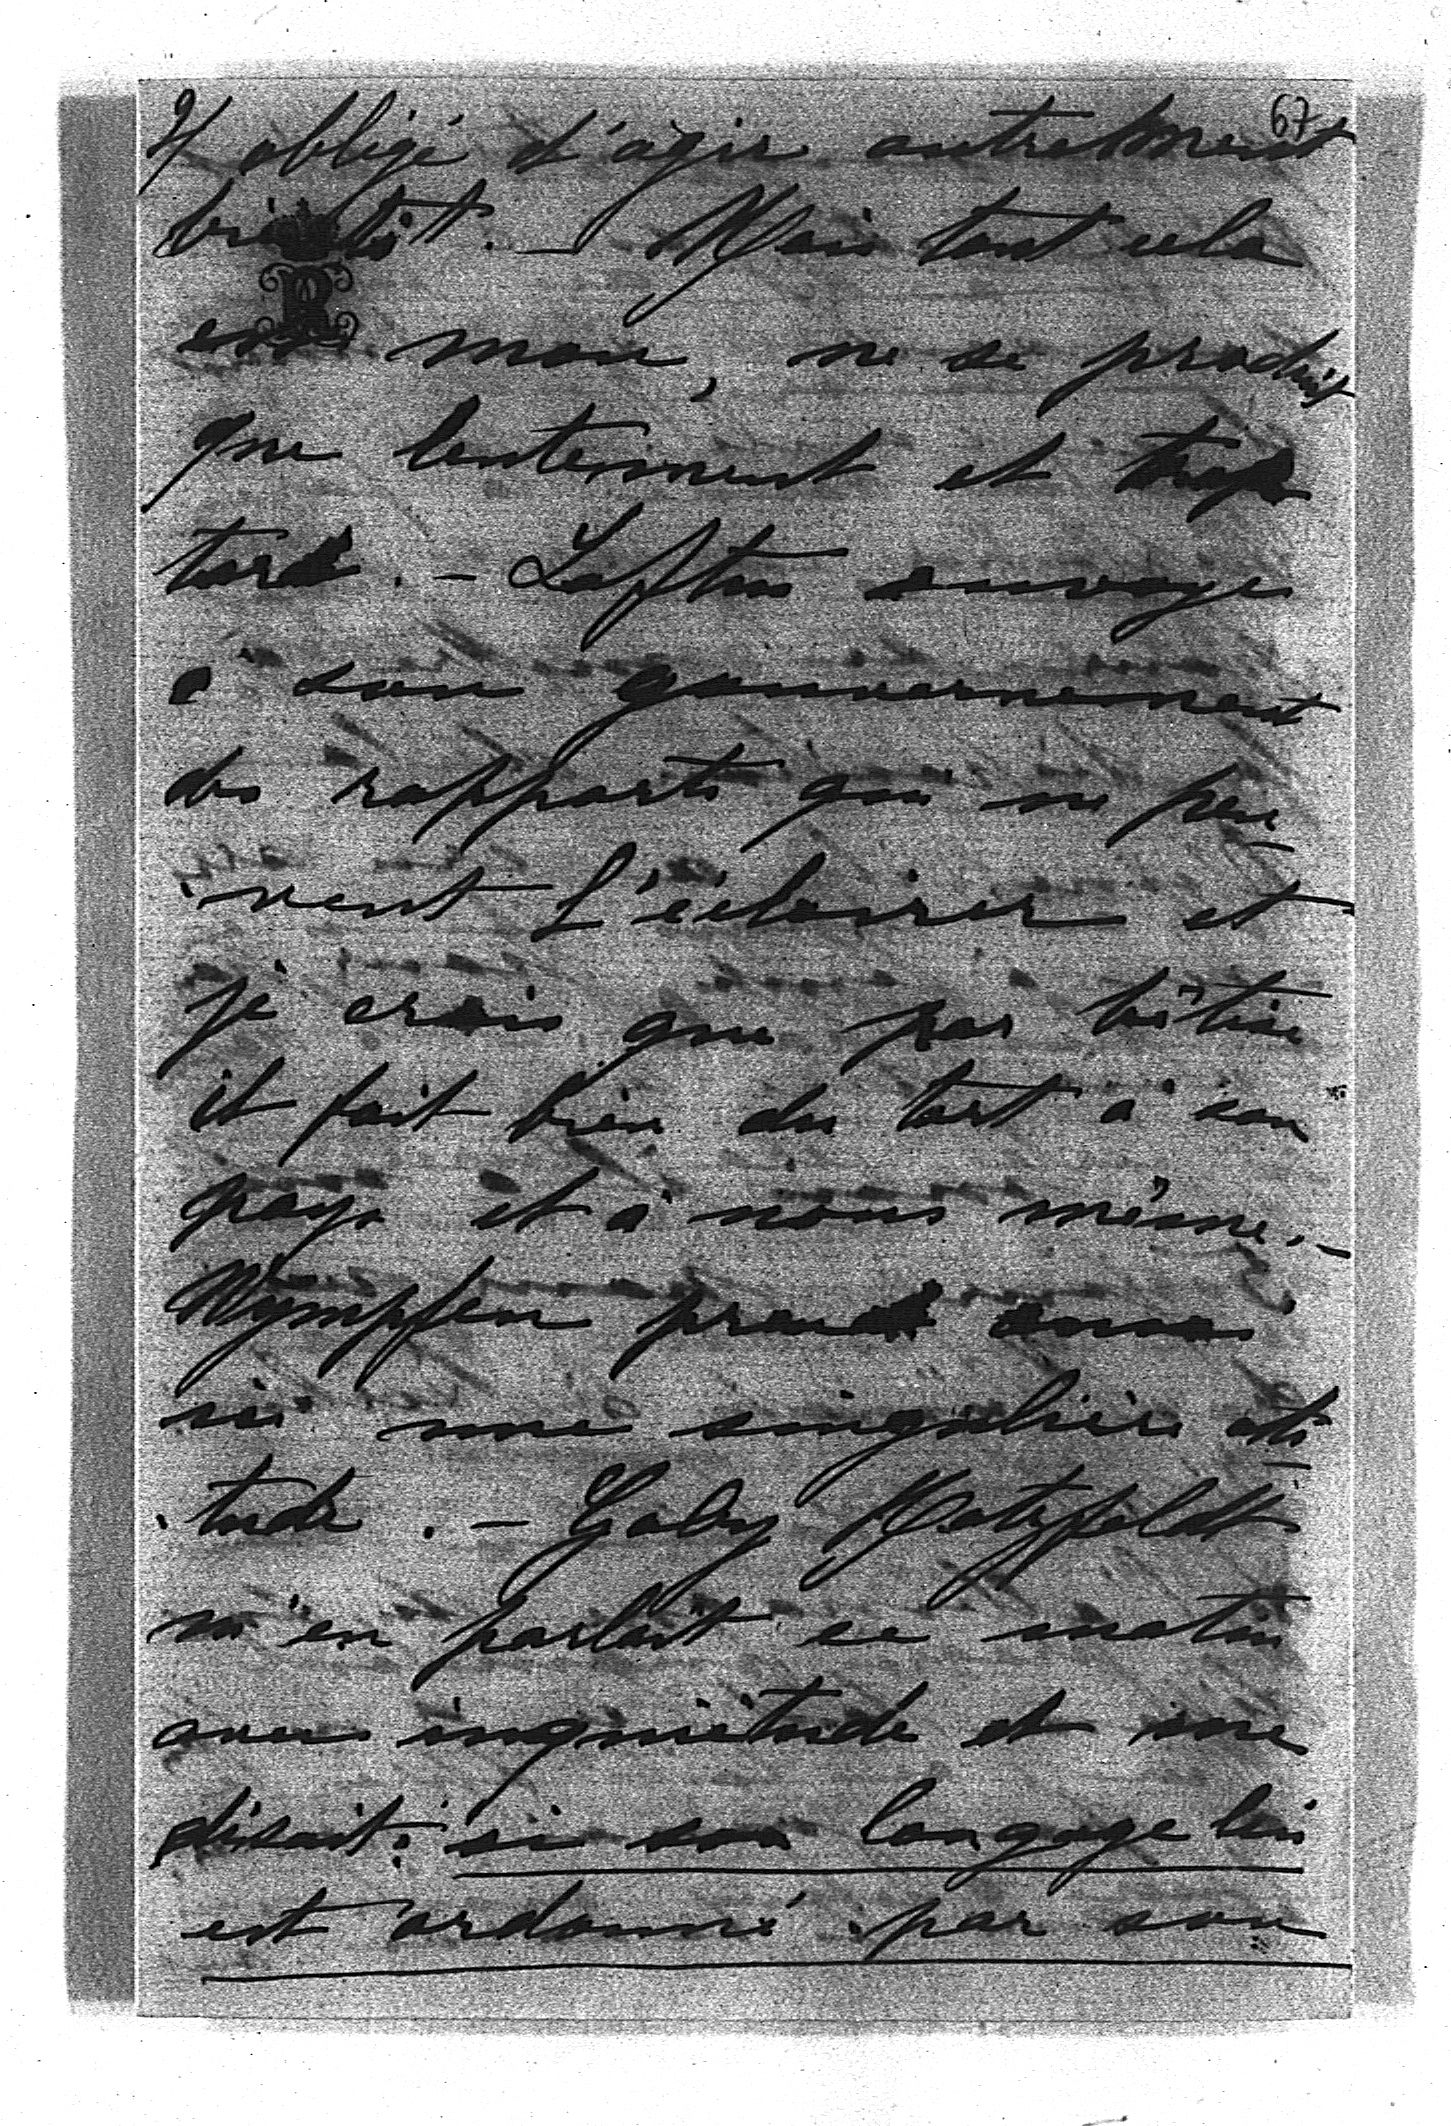 67
2/ obligé d'agir autrement
bientôt. — Mais tout cela
est mou, ne se produit
que lentement et trop
tard. — Loftus envoye
à son gouvernement
des rapports qui ne peu
vent l'éclairer et
je crois que par bêtise
il fait bien du tort à son
pays et à nous même. —
Wympfen prend aus
si une singulière atti
tude. — Gaby Hatzfeldt
m'en parlait ce matin
avec inquiétude et me
disait: si son langage lui
est ordonné par son